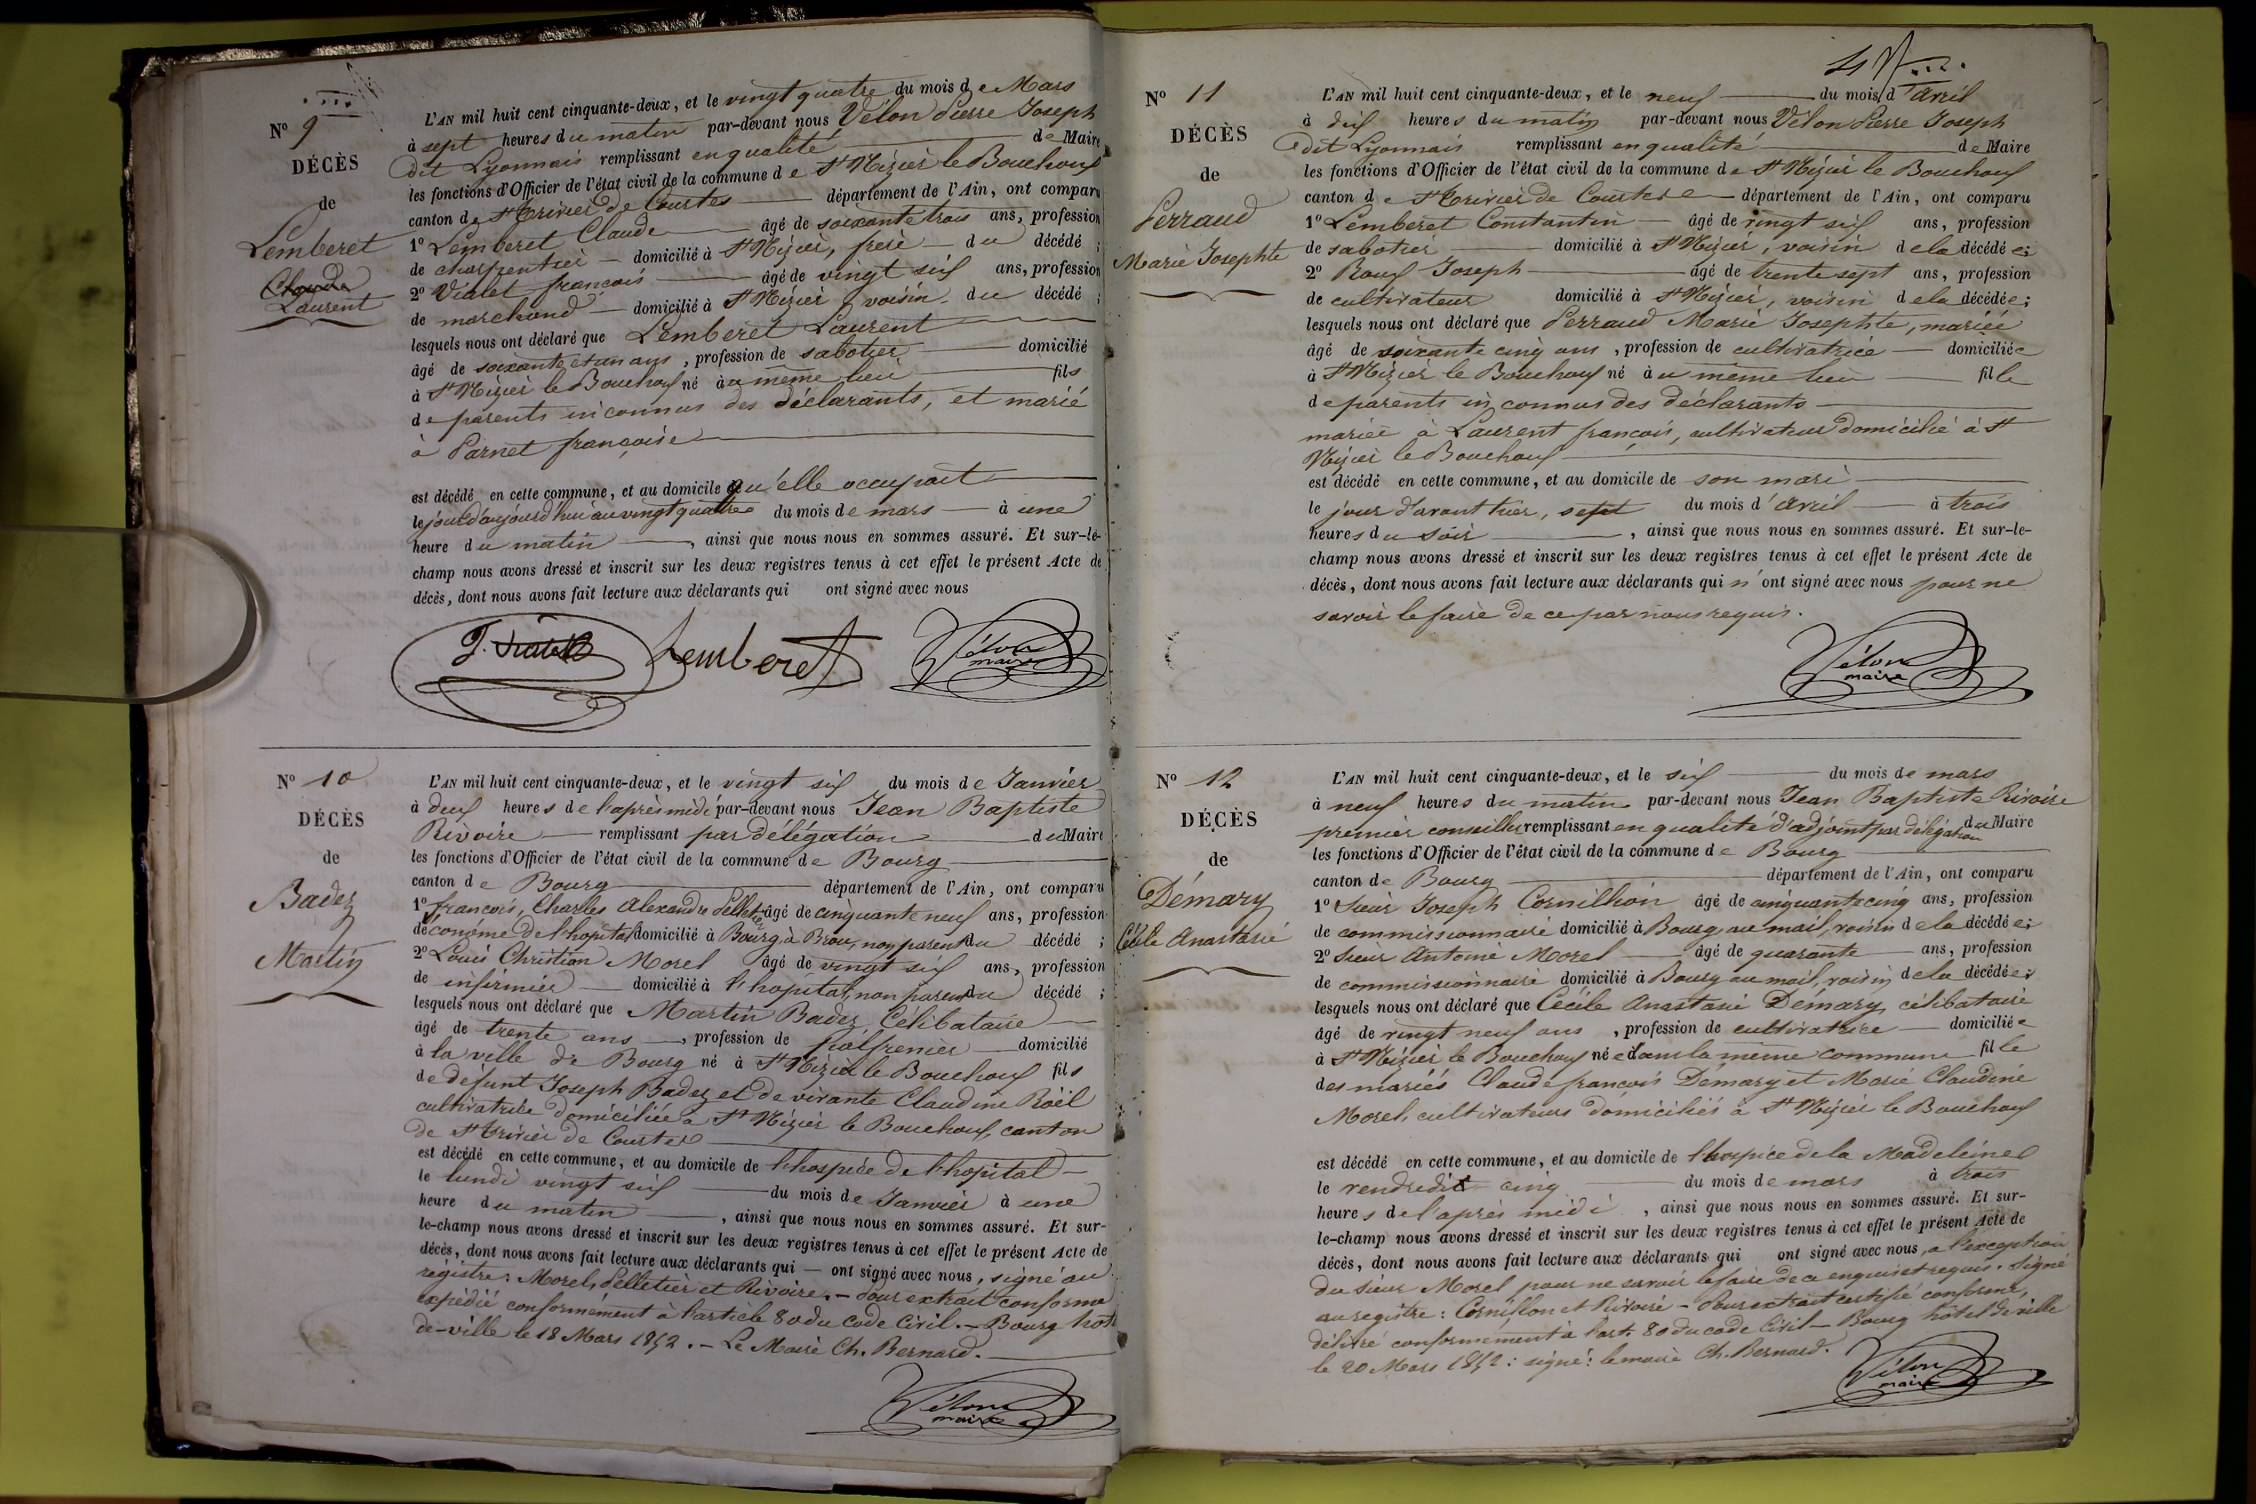 Nº 9
DÉCÈS
de
Lemberet
Claude
Laurent
L'AN mil huit cent cinquante-deux, et le vingt quatre du mois de Mars
à sept heures du matin par-devant nous Vélon Pierre Joseph
dit Lyonnais remplissant en qualité de Maire
les fonctions d'Officier de l'état civil de la commune de St Nizier le Bouchoux
canton de St Trivier de Courtes département de l'Ain, ont comparu
1º Lemberet Claude âgé de soixante trois ans, profession
de charpentier domicilié à St Nizier, frère du décédé ;
2º Vialet françois âgé de vingt six ans, profession
de marchand domicilié à St Nizier, voisin du décédé ;
lesquels nous ont déclaré que Lemberet Laurent
âgé de soixante et un ans, profession de sabotier domicilié
à St Nizier le Bouchoux né au même lieu fils
de parents inconnus des déclarants, et marié
à Parnet françoise
est décédé en cette commune, et au domicile qu'elle occupait
le jour d'aujourd'hui au vingt quatre du mois de mars à une
heure du matin, ainsi que nous nous en sommes assuré. Et sur-le-
champ nous avons dressé et inscrit sur les deux registres tenus à cet effet le présent Acte de
décès, dont nous avons fait lecture aux déclarants qui ont signé avec nous
Lemberet
Vélon
maire
Nº 10
DÉCÈS
de
Badez
Martin
L'AN mil huit cent cinquante-deux, et le vingt six du mois de Janvier
à deux heures de l'après midi par-devant nous Jean Baptiste
Rivoire remplissant par délégation du Maire
les fonctions d'Officier de l'état civil de la commune de Bourg
canton de Bourg département de l'Ain, ont comparu
1º françois, Charles Alexandre Pelletier âgé de cinquante neuf ans, profession
d'économe de l'hopital domicilié à Bourg à Brou, non parent du décédé ;
2º Louis Christian Morel âgé de vingt six ans, profession
de infirmier domicilié à l'hopital, non parent du décédé ;
lesquels nous ont déclaré que Martin Badez, Célibataire
âgé de trente ans, profession de palfrenier domicilié
à la ville de Bourg né à St Nizier le Bouchoux fils
de défunt Joseph Badez et de vivante Claudine Roël
cultivatrice domiciliée à St Nizier le Bouchoux, canton
de St Trivier de Courtes
est décédé en cette commune, et au domicile de l'hospice de l'hopital
le lundi vingt six du mois de Janvier à une
heure du matin, ainsi que nous nous en sommes assuré. Et sur-
le-champ nous avons dressé et inscrit sur les deux registres tenus à cet effet le présent Acte de
décès, dont nous avons fait lecture aux déclarants qui — ont signé avec nous, signé au
régistre : Morel, Pelletier et Rivoire. — Pour extrait conforme
expédié conformément à l'article 80 du Code Civil. — Bourg hotel
de-ville le 18 Mars 1852. — Le Maire Ch. Bernard.
Vélon
maire
Nº 11
DÉCÈS
de
Perraud
Marie Josephte
L'AN mil huit cent cinquante-deux, et le neuf du mois d'avril
à dix heures du matin par-devant nous Vélon Pierre Joseph
dit Lyonnais remplissant en qualité de Maire
les fonctions d'Officier de l'état civil de la commune de St Nizier le Bouchoux
canton de St Trivier de Courtes département de l'Ain, ont comparu
1º Lemberet Constantin âgé de vingt six ans, profession
de sabotier domicilié à St Nizier, voisin de la décédée;
2º Roux Joseph âgé de trente sept ans, profession
de cultivateur domicilié à St Nizier, voisin de la décédée;
lesquels nous ont déclaré que Perraud Marie Josephte, mariée
âgé de soixante cinq ans, profession de cultivatrice domiciliée
à St Nizier le Bouchoux né au même lieu fille
de parents inconnus des déclarants
mariée à Laurent françois, cultivateur domicilié à St
Nizier le Bouchoux
est décédé en cette commune, et au domicile de son mari
le jour d'avant hier, sept du mois d'avril à trois
heures du soir, ainsi que nous nous en sommes assuré. Et sur-le-
champ nous avons dressé et inscrit sur les deux registres tenus à cet effet le présent Acte de
décès, dont nous avons fait lecture aux déclarants qui n'ont signé avec nous pour ne
savoir le faire de ce par nous requis.
Vélon
maire
Nº 12
DÉCÈS
de
Démary
Cécile Anastasie
L'AN mil huit cent cinquante-deux, et le six du mois de mars
à neuf heures du matin par-devant nous Jean Baptiste Rivoire
premier conseiller remplissant en qualité d'adjoint par délégation du Maire
les fonctions d'Officier de l'état civil de la commune de Bourg
canton de Bourg département de l'Ain, ont comparu
1º Sieur Joseph Cornillon âgé de cinquante cinq ans, profession
de commissionnaire domicilié à Bourg, au mail, voisin de la décédée;
2º Sieur Antoine Morel âgé de quarante ans, profession
de commissionnaire domicilié à Bourg au mail, voisin de la décédée;
lesquels nous ont déclaré que Cécile Anastasie Démary, célibataire
âgé de vingt neuf ans, profession de cultivatrice domiciliée
à St Nizier le Bouchoux née dans la même commune fille
des mariés Claude françois Démary et Marie Claudine
Morel, cultivateurs domiciliés à St Nizier le Bouchoux
est décédé en cette commune, et au domicile de l'hospice de la Madeleine
le vendredi cinq du mois de mars à trois
heures de l'après midi, ainsi que nous nous en sommes assuré. Et sur-
le-champ nous avons dressé et inscrit sur les deux registres tenus à cet effet le présent Acte de
décès, dont nous avons fait lecture aux déclarants qui ont signé avec nous, à l'exception
du sieur Morel pour ne savoir le faire de ce enquis et requis. Signé
au registre : Cornillon et Rivoire — Pour extrait certifié conforme,
délivré conformément à l'art. 80 du code Civil — Bourg hôtel de ville
le 20 Mars 1852 : signé : le maire Ch. Bernard.
Vélon
maire